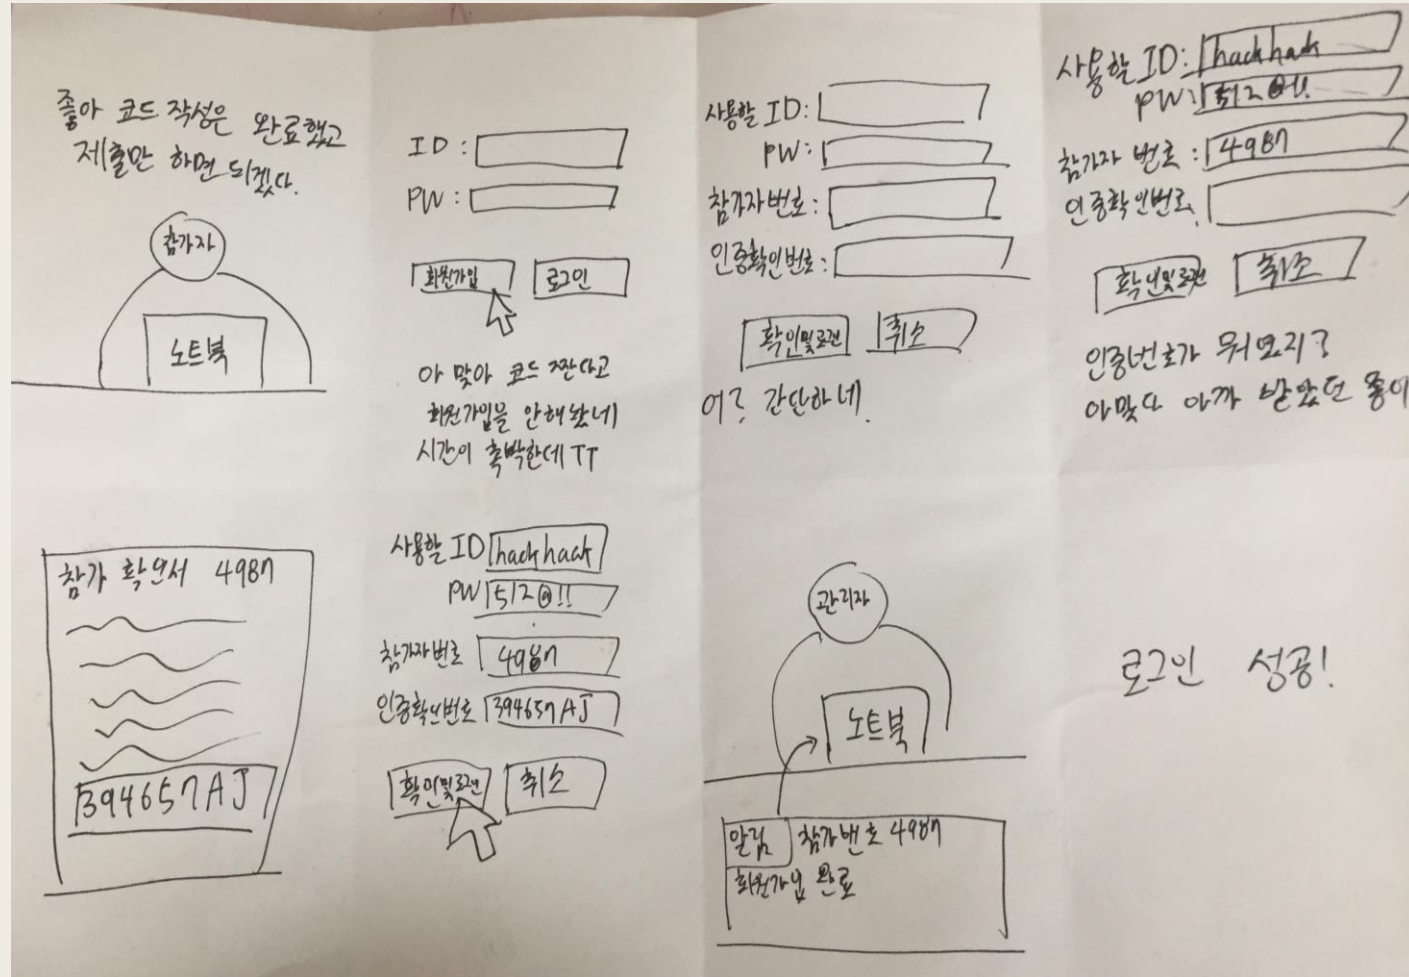 좋아 코드 작성은 완료했고
제출만 하면 되겠다.
참가자
노트북
ID :
PW :
회원가입
로그인
아 맞아 코드 짠다고
회원가입을 안해놨네
시간이 촉박한데 TT
사용할 ID:
PW:
참가자번호:
인증확인번호:
확인및로그인
취소
어? 간단하네.
사용할 ID: hackhack
PW: 1512@!!
참가자 번호 : 4987
인증확인번호:
확인및로그인
취소
인증번호가 뭐였지?
아맞다 아까 받았던 종이
참가 확인서 4987
394657AJ
사용할 ID hackhack
PW 1512@!!
참가자번호 4987
인증확인번호 394657AJ
확인및로그인
취소
관리자
노트북
알림 참가번호 4987
회원가입 완료
로그인 성공!